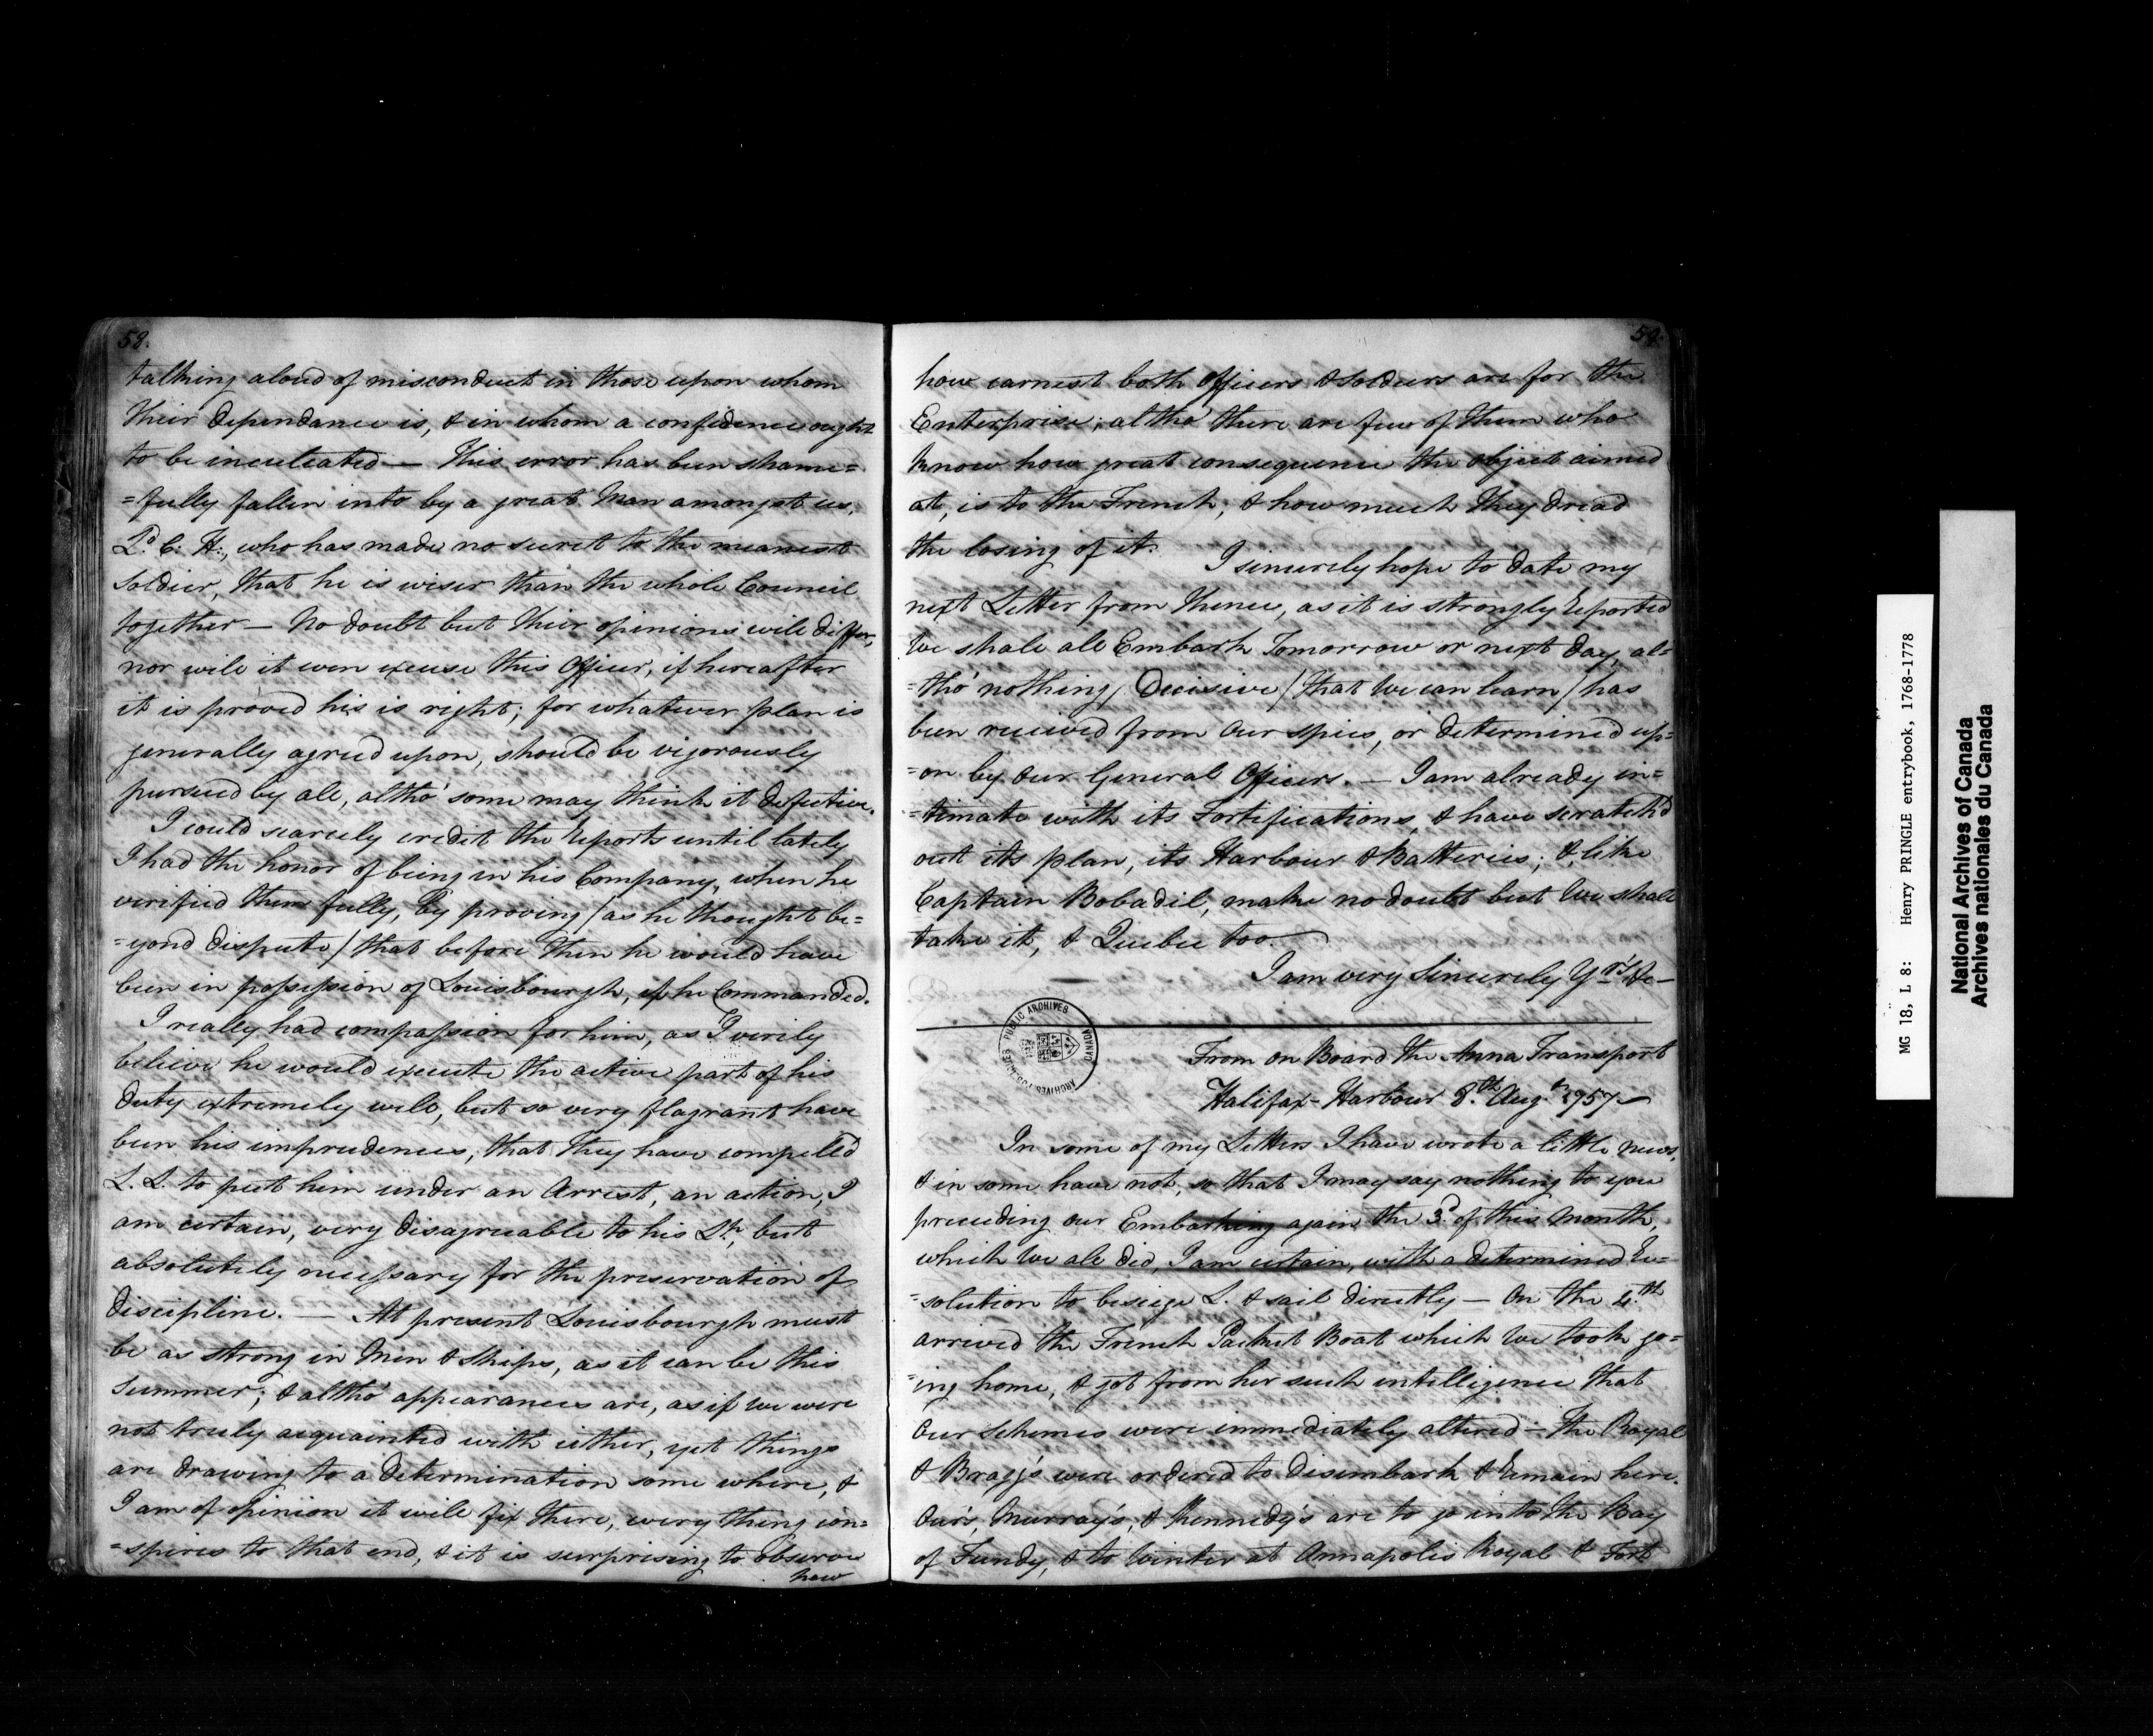 58.
talking aloud of misconduct in those upon whom
their dependance is, & in whom a confidence ought
to be inculcated — This error has been shame=
=fully fallen into by a great Man amongst us,
Ld. C: H:, who has made no secret to the meanest
Soldier, that he is wiser than the whole Council
together — No doubt but their opinions will differ,
nor will it even excuse this Officer, if hereafter
it is proved his is right; for whatever plan is
generally agreed upon, should be vigorously
pursued by all, altho' some may think it defective.
I could scarcely credit the Reports until lately
I had the honor of being in his Company, when he
verified them fully, By proving / as he thought be=
=yond dispute / that before then he would have
been in possession of Louisbourgh, if he Commanded.
I really had compassion for him, as I verily
believe he would execute the active part of his
duty extremely well, but so very flagrant have
been his imprudences, that they have compell'd
L. L. to put him under an Arrest, an action, I
am certain, very disagreeable to his Lp., but
absolutely necessary for the preservation of
discipline. — At present Louisbourgh must
be as strong in Men & Ships, as it can be this
Summer; & altho' appearances are, as if we were
not truly acquainted with either, yet things
are drawing to a determination some where, &
I am of opinion it will fix there, every thing con=
=spires to that end, & it is surprising to observe
how
59.
how earnest both Officers & Soldiers are for the
Enterprise; altho' there are few of them who
know how great consequence the object aimed
at, is to the French; & how much they dread
the losing of it. I sincerely hope to date my
next Letter from thence, as it is strongly Reported
We shall all Embark Tomorrow or next day, al=
=tho' nothing Decisive / that We can learn / has
been received from our spies, or determined up=
=on by our General Officers. — I am already in=
=timate with its Fortifications, & have scratch'd
out its plan, its Harbour & Batteries; & like
Captain Bobadil, make no doubt but We shall
take it, & Quebec too.
I am very Sincerely Yrs. &c —
PUBLIC ARCHIVES CANADA
ARCHIVES PUBLIQUES
From on Board the Anna Transport
Halifax-Harbour 8th. Augt. 1757 —
In some of my Letters I have wrote a little news,
& in some have not, so that I may say nothing to you
preceeding our Embarking again the 3d. of this Month,
which We all did, I am certain, with a determined Re=
=solution to besiege L. & sail directly — On the 4th.
arrived the French Packet Boat which We took go=
=ing home, & got from her such intelligence that
Our Schemes were immediately altered — The Royal
& Bragg's were ordered to disembark & Remain here.
Our's, Murray's, & Kennedy's are to go into the Bay
of Fundy, & to Winter at Annapolis Royal & Fort
MG 18, L 8: Henry PRINGLE entrybook, 1768-1778
National Archives of Canada
Archives nationales du Canada